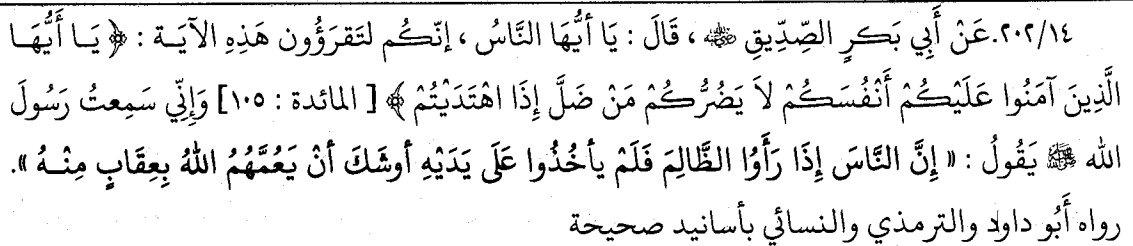 ٢٠٢/١٤. عَنْ أَبِي بَكرٍ الصِّدِّيقِ ﵁ ، قَالَ : يَا أَيُّهَا النَّاسُ ، إنّكُم لتَقرَؤُون هَذِهِ الآيَـة : ﴿ يَـا أَيُّهَـا
الَّذِينَ آمَنُوا عَلَيْكُمْ أَنْفُسَكُمْ لاَ يَضُرُّكُمْ مَنْ ضَلَّ إِذَا اهْتَدَيْتُمْ ﴾ [ المائدة : ١٠٥ ] وَإِنِّي سَمِعتُ رَسُولَ
الله ﷺ يَقُولُ : « إِنَّ النَّاسَ إِذَا رَأَوُا الظَّالِمَ فَلَمْ يأخُذُوا عَلَى يَدَيْهِ أوشَكَ أنْ يَعُمَّهُمُ اللهُ بِعِقَابٍ مِنْـهُ ».
رواه أَبُو داود والترمذي والنسائي بأسانيد صحيحة